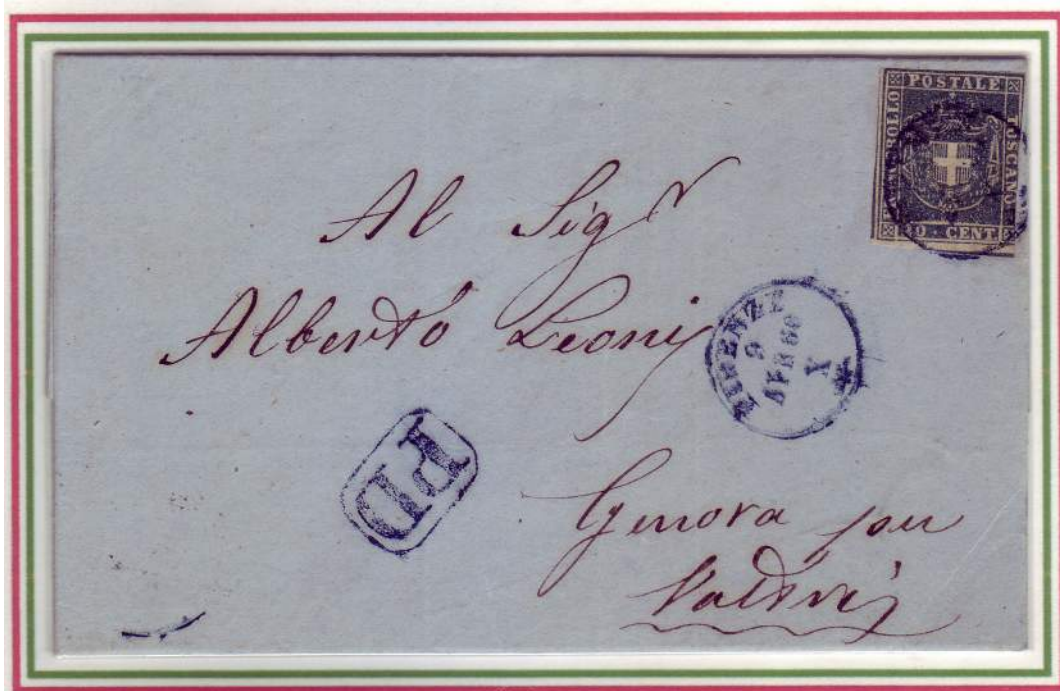 FRANCOBOLLO POSTALE TOSCANO
CENT
Al Sigr
Alberto Leoni
FIRENZE
9
APR 60
X
PD
Genova per